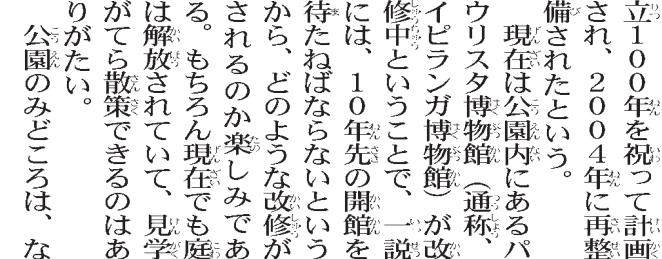 立１００年を祝って計画
され、２００４年に再整
備されたという。
　現在は公園内にあるパ
ウリスタ博物館（通称、
イピランガ博物館）が改
修中ということで、一説
には、１０年先の開館を
待たねばならないという
から、どのような改修が
されるのか楽しみであ
る。もちろん現在でも庭
は解放されていて、見学
がてら散策できるのはあ
りがたい。
　公園のみどころは、な